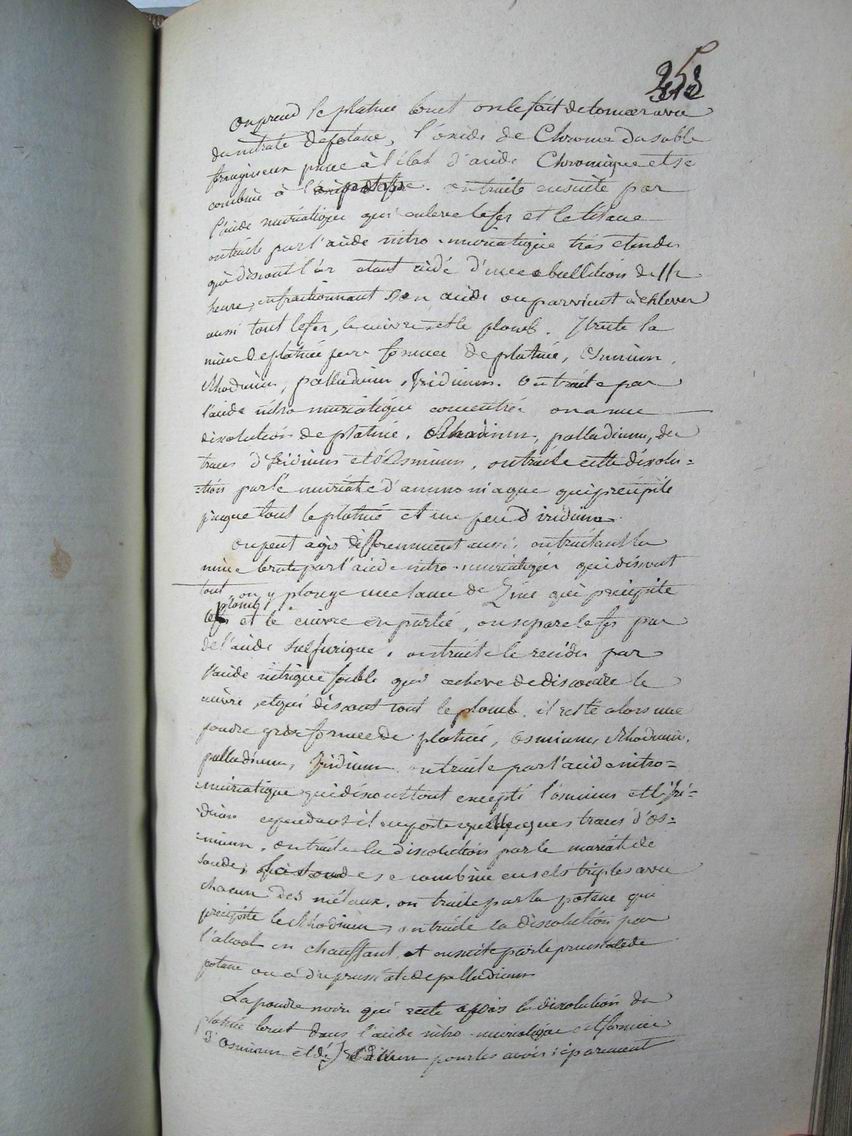 253
on prend le platine brut on le fait detonner avec
du nitrate de potasse, l'oxide de Chrome du sable
ferrugineux passe à l'état d'acide Chromique et se
combine à la potasse. on traite ensuite par
l'acide muriatique qui enleve le fer et le titane
on traite par l'acide nitro-muriatique tres etendu
qui dissout l'or etant aidé d'une ebullition de
heure, en fractionnant son acide on parvient à enlever
aussi tout le fer, le cuivre et le plomb. Il reste la
mine de platine pure formée de platine, Osmium,
Rhodium, palladium, Iridium. on traite par
l'acide nitro muriatique concentré on a une
dissolution de platine, Rhodium, palladium, des
traces d'Iridium et d'Osmium, on traite cette dissolu=
=tion par le muriate d'ammoniaque qui precipite
presque tout le platine et un peu d'iridium.
on peut agir differemment aussi, en traitant la
mine brute par l'acide nitro-muriatique qui dissout
tout on y plonge une lame de Zinc qui precipite
plomb
le fer et le cuivre en partie, on separe le fer par
de l'acide sulfurique, on traite le residu par
l'acide nitrique faible qui acheve de dissoudre le
cuivre, et qui dissout tout le plomb, il reste alors une
poudre grise formée de platine, Osmium, Rhodium,
palladium, Iridium. on traite par l'acide nitro=
=muriatique qui dissout tout excepté l'osmium et l'iri=
=dium cependant il emporte quelques traces d'os=
=mium. on traite la dissolution par le muriate de
soude, la soude se combine en sels triples avec
chacun des métaux. on traite par la potasse qui
précipite le Rhodium, on traite la dissolution par
l'alcool en chauffant et ensuite par le prussiate de
potasse on a du prussiate de palladium
La poudre noire qui reste après la dissolution du
platine brut dans l'acide nitro-muriatique est formée
d'Osmium et d'Iridium pour les avoir séparement